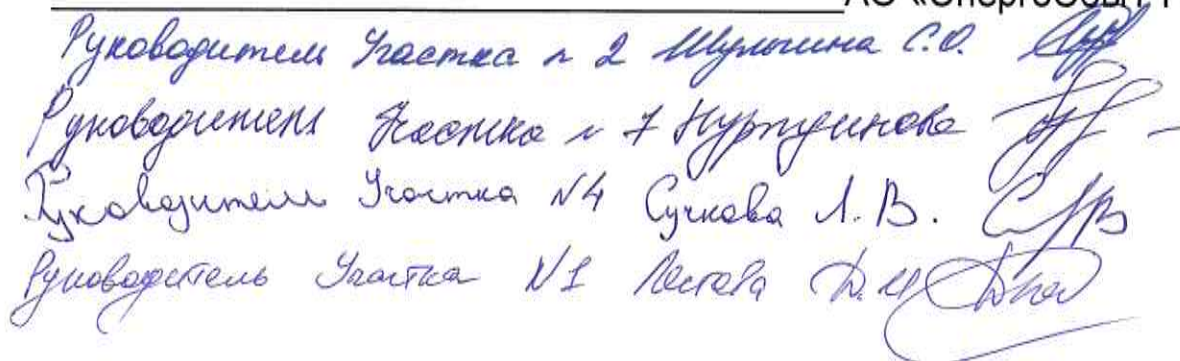 АО «ЭнергоСбыт
Руководитель Участка № 2 Шульгина С.О.
Руководитель Участка № 7 Нуртдинова
Руководитель Участка №4 Сучкова Л. В.
Руководитель Участка №1 Д.И